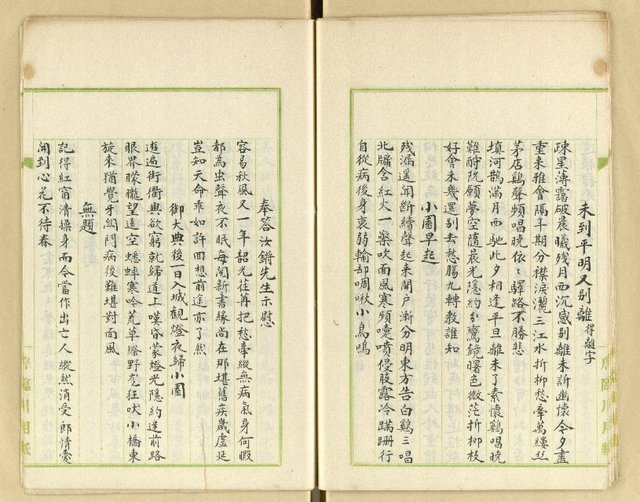 未到平明又別離 得離字
疎星薄霧破晨曦殘月西沉感別離未訴幽懷今夕盡
重來雅會隔年期分襟淚灑三江水折柳愁牽萬縷絲
茅店鷄聲頻唱晚依〻驛路不勝悲
填河鵲滿月西馳此夕相逢平旦離未了素懷鷄唱晚
難酬阮願夢空隨晨光隱約分鸞鏡曙色微茫折柳枝
好會未幾還別去愁腸九轉教誰知
小園早起
殘漏遙聞斷續聲起來開戶漸分明東方告白鷄三唱
北牖含紅火一縈未暁曲風寒頻噴侵肢露冷蹣跚行
自從病後身衰弱輸却啁啾小鳥鳴
奉答汝鏘先生示慰
容易秋風又一年韶光荏苒把愁牽縱無病氣身何暇
都為虫聲夜不眠每閱新書緣尚在那堪舊疾歲虛延
豈知天命乖如許回想前途亦了然
御大典後一日入城觀燈夜歸小園
逍遙街衢興欲窮就歸道上嘆昏蒙燈光隱約迷前路
眼界朦朧望遠空蟋蟀寒吟荒草際野尨狂吠小橋東
旋來猶覺牙關鬥病後難堪對面風
無題
記得紅窗清操身而今當作出亡人縱然消受郎情意
開到心花不待春